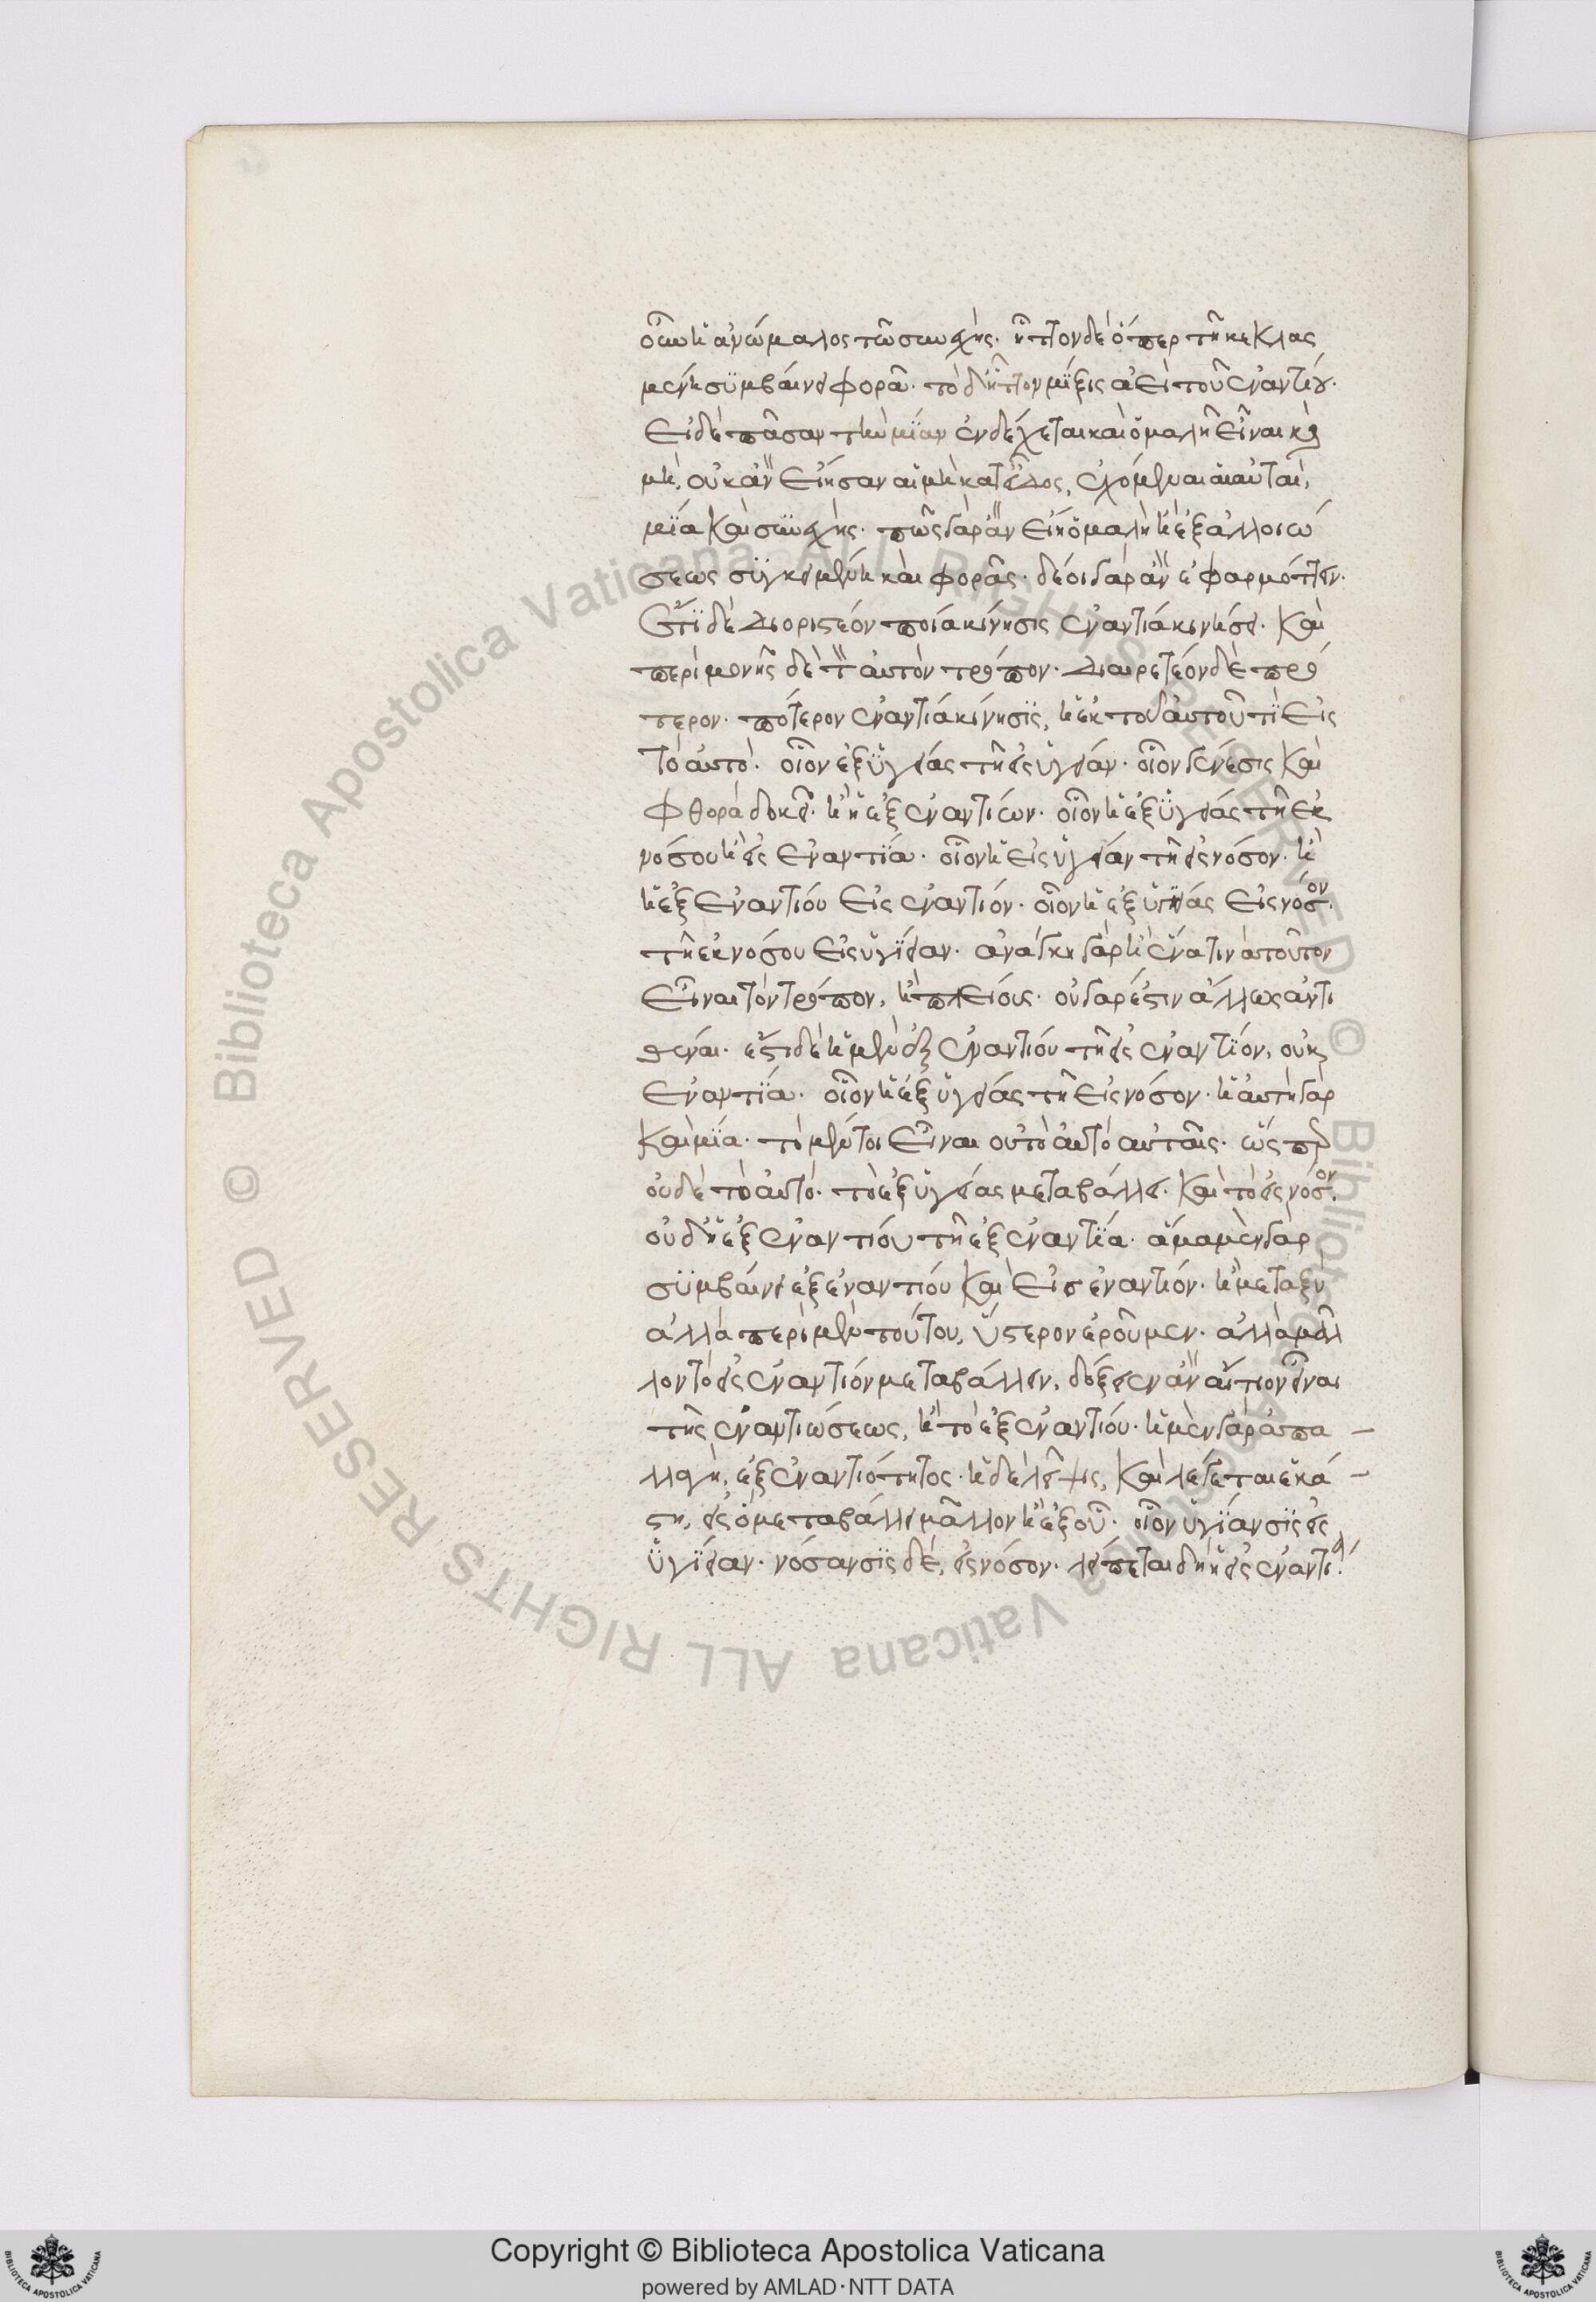 οὖν ἡ ἀνώμαλος τῷ συνεχής. ἧττον δὲ ὅπερ τῇ κεκλας
μένη συμβαίνει φορᾷ. τὸ δ' ἧττον μίξις ἀεὶ τοῦ ἐναντίου.
Εἰ δὲ πᾶσαν τὴν μίαν ἐνδέχεται καὶ ὁμαλῆ εἶναι καὶ
μή, οὐκ ἂν εἴησαν αἱ μὴ κατ' εἶδος, ἐχόμεναι αἱ αὐταί,
μία καὶ συνεχής. πῶς γὰρ ἂν εἴη ὁμαλὴ ἡ ἐξ ἀλλοιώ
σεως συγκειμένη καὶ φορᾶς. δέοι γὰρ ἂν ἐφαρμόττειν.
Ἔτι δὲ διοριστέον ποία κίνησις ἐναντία κινήσει. καὶ
περὶ μονῆς δὲ τ' αὐτὸν τρόπον. διαιρετέον δὲ πρό
τερον. πότερον ἐναντία κίνησις, ἡ ἐκ τοῦ αὐτοῦ τῇ εἰς
τὸ αὐτό. οἷον ἐξ ὑγιείας τῇ εἰς ὑγίειαν. οἷον γένεσις καὶ
φθορὰ δοκεῖ. ἢ ἡ ἐξ ἐναντίων. οἷον ἡ ἐξ ὑγιείας τῇ ἐκ
νόσου ἢ εἰς ἐναντία. οἷον ἡ εἰς ὑγίειαν τῇ εἰς νόσον. ἢ
ἡ ἐξ ἐναντίου εἰς ἐναντίον. οἷον ἡ ἐξ ὑγιείας εἰς νόσον.
τῇ ἐκ νόσου εἰς ὑγίειαν. ἀνάγκη γὰρ ἢ ἕνα τινὰ τοῦτον
εἶναι τὸν τρόπον, ἢ πλείους. οὐ γὰρ ἔστιν ἄλλως ἀντι
θεῖναι. ἔστι δὲ ἡ μὲν ἐξ ἐναντίου τῇ εἰς ἐναντίον, οὐκ
ἐναντία. οἷον ἡ ἐξ ὑγιείας τῇ εἰς νόσον. ἡ αὐτὴ γὰρ
καὶ μία. τὸ μέντοι εἶναι οὐ τὸ αὐτὸ αὐταῖς. ὥσπερ
οὐδὲ τὸ αὐτό. τὸ ἐξ ὑγιείας μεταβάλλει. καὶ τὸ εἰς νόσον.
οὐδ' ἡ ἐξ ἐναντίου τῇ ἐξ ἐναντία. ἅμα μὲν γὰρ
συμβαίνει ἐξ ἐναντίου καὶ εἰς ἐναντίον. ἢ μεταξὺ
ἀλλὰ περὶ μὲν τούτου, ὕστερον ἐροῦμεν. ἀλλὰ μᾶλ
λον τὸ εἰς ἐναντίον μεταβάλλειν, δόξειεν ἂν αἴτιον εἶναι
τῆς ἐναντιώσεως, ἢ τὸ ἐξ ἐναντίου. ἡ μὲν γὰρ ἀπα
λλαγή, ἐξ ἐναντιότητος. ἡ δὲ λῆψις, καὶ λέγεται ἑκά
στη, εἰς ὃ μεταβάλλει μᾶλλον ἢ ἐξ οὗ. οἷον ὑγίανσις εἰς
ὑγίειαν. νόσανσις δέ, εἰς νόσον. λείπεται δὴ ἡ εἰς ἐναντία.
Copyright © Biblioteca Apostolica Vaticana
powered by AMLAD·NTT DATA